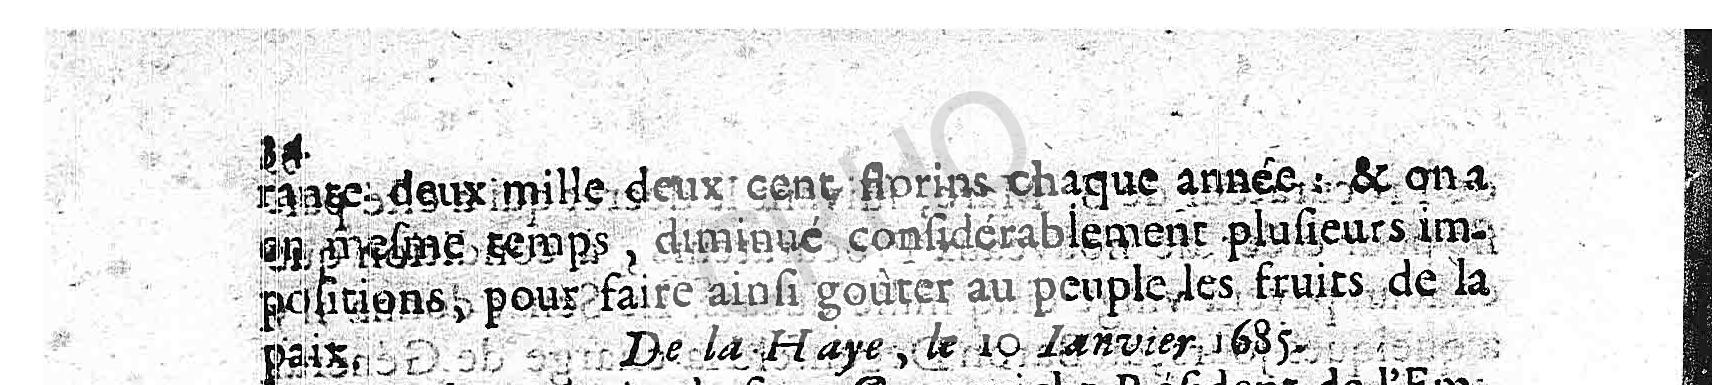 34
rante-deux mille deux cent florins chaque année : & on a
en meſme temps, diminué conſidérablement pluſieurs im-
poſitions, pour faire ainſi goûter au peuple les fruits de la
paix. De la Haye, le 10 Ianvier 1685.
Préſident de l'Em-